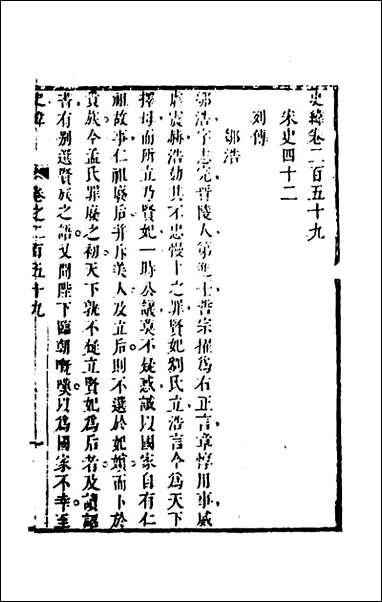 史緯卷二百五十九
宋史四十二
列傳
鄒浩
鄒浩字志完晉陵人第進士哲宗擢為右正言章惇用事威
虐震赫浩劾其不忠慢上之罪賢妃劉氏立浩言今為天下
擇母而所立乃賢妃一時公議莫不疑惑誠以國家自有仁
祖故事仁祖廢后并斥美人及立后則不選於妃嬪而卜於
貴族今孟氏罪廢之初天下孰不疑立賢妃為后者及讀詔
書有別選賢族之語又聞陛下臨朝慨嘆以為國家不幸至
史緯
卷之二百五十九